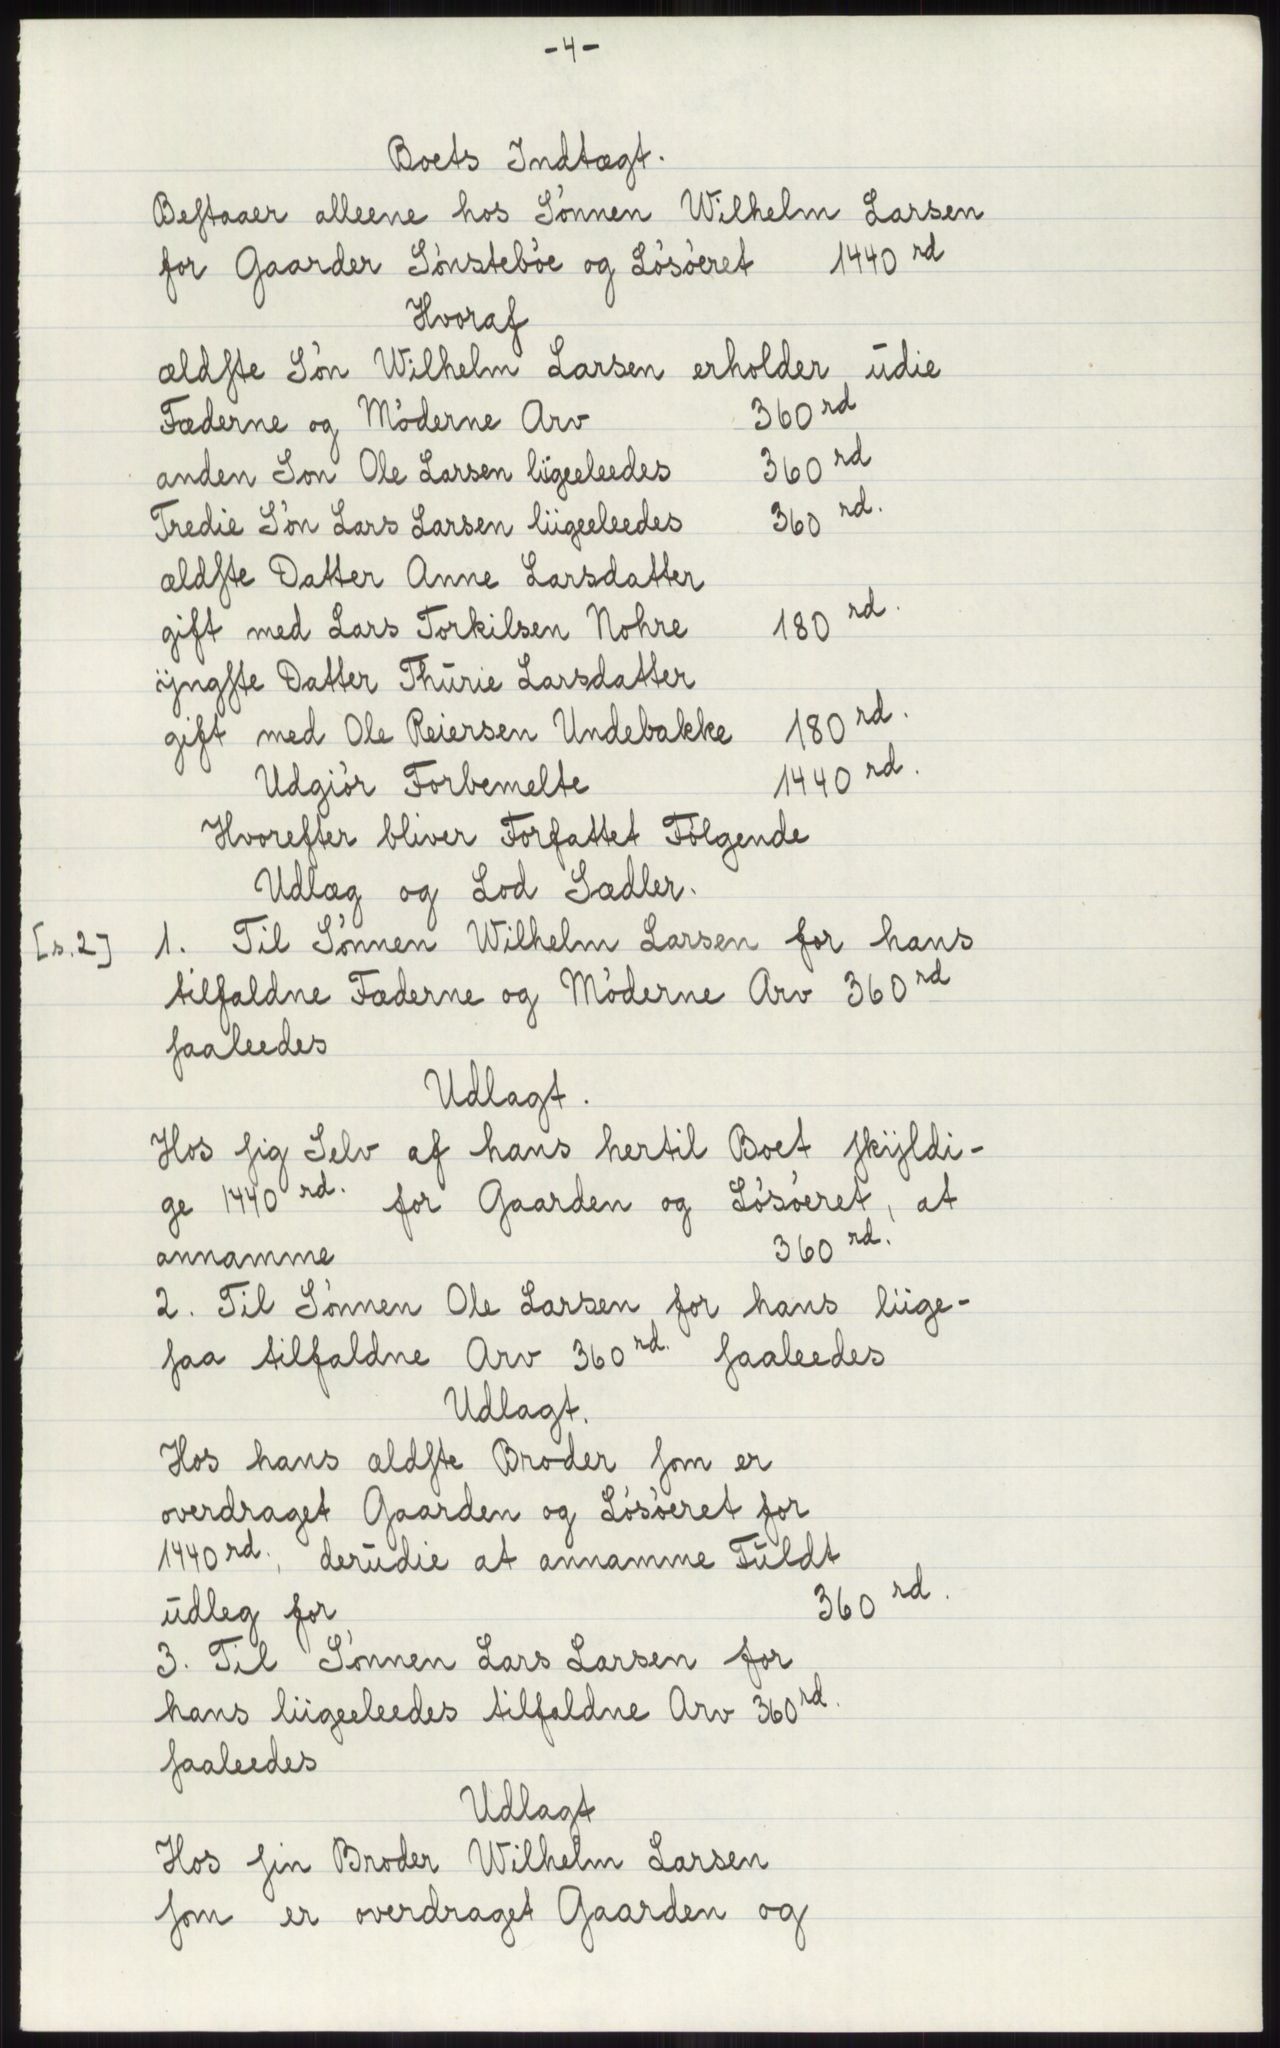 -4-
Boets Indtægt.
Beſtaaer alleene hos Sønnen Wilhelm Larsen
for Gaarder Sønstebøe og Løsøeret 1440 rd
Hvoraf
ældſte Søn Wilhelm Larsen erholder udie
Fæderne og Møderne Arv 360 rd
anden Son Ole Larsen liigeeleedes 360 rd
Tredie Søn Lars Larsen liigeeleedes 360 rd.
ældſte Datter Anne Larsdatter
gift med Lars Torkilsen Nohre 180 rd.
ÿngſte Datter Thūrie Larsdatter
gift med Ole Reiersen Undebakke 180 rd.
Udgiør Forbemelte 1440 rd.
Hvorefter bliver Forfattet Følgende
Udlæg og Lod Sædler.
[s.2] 1. Til Sønnen Wilhelm Larsen for hans
tilfaldne Fæderne og Møderne Arv 360 rd
ſaaleedes
Udlagt.
Hos ſig Selv af hans hertil Boet ſkÿldi-
ge 1440 rd. for Gaarden og Løsøeret, at
annamme 360 rd.
2. Til Sønnen Ole Larsen for hans liige-
ſaa tilfaldne Arv 360 rd. ſaaleedes
Udlagt.
Hos hans ældſte Broder ſom er
overdraget Gaarden og Løsøeret for
1440 rd., derūdie at annamme Fūldt
ūdleg for 360 rd.
3. Til Sønnen Lars Larsen for
hans liigeeleedes tilfaldne Arv 360 rd.
ſaaleedes
Udlagt
Hos ſin Broder Wilhelm Larsen
ſom er overdraget Gaarden og